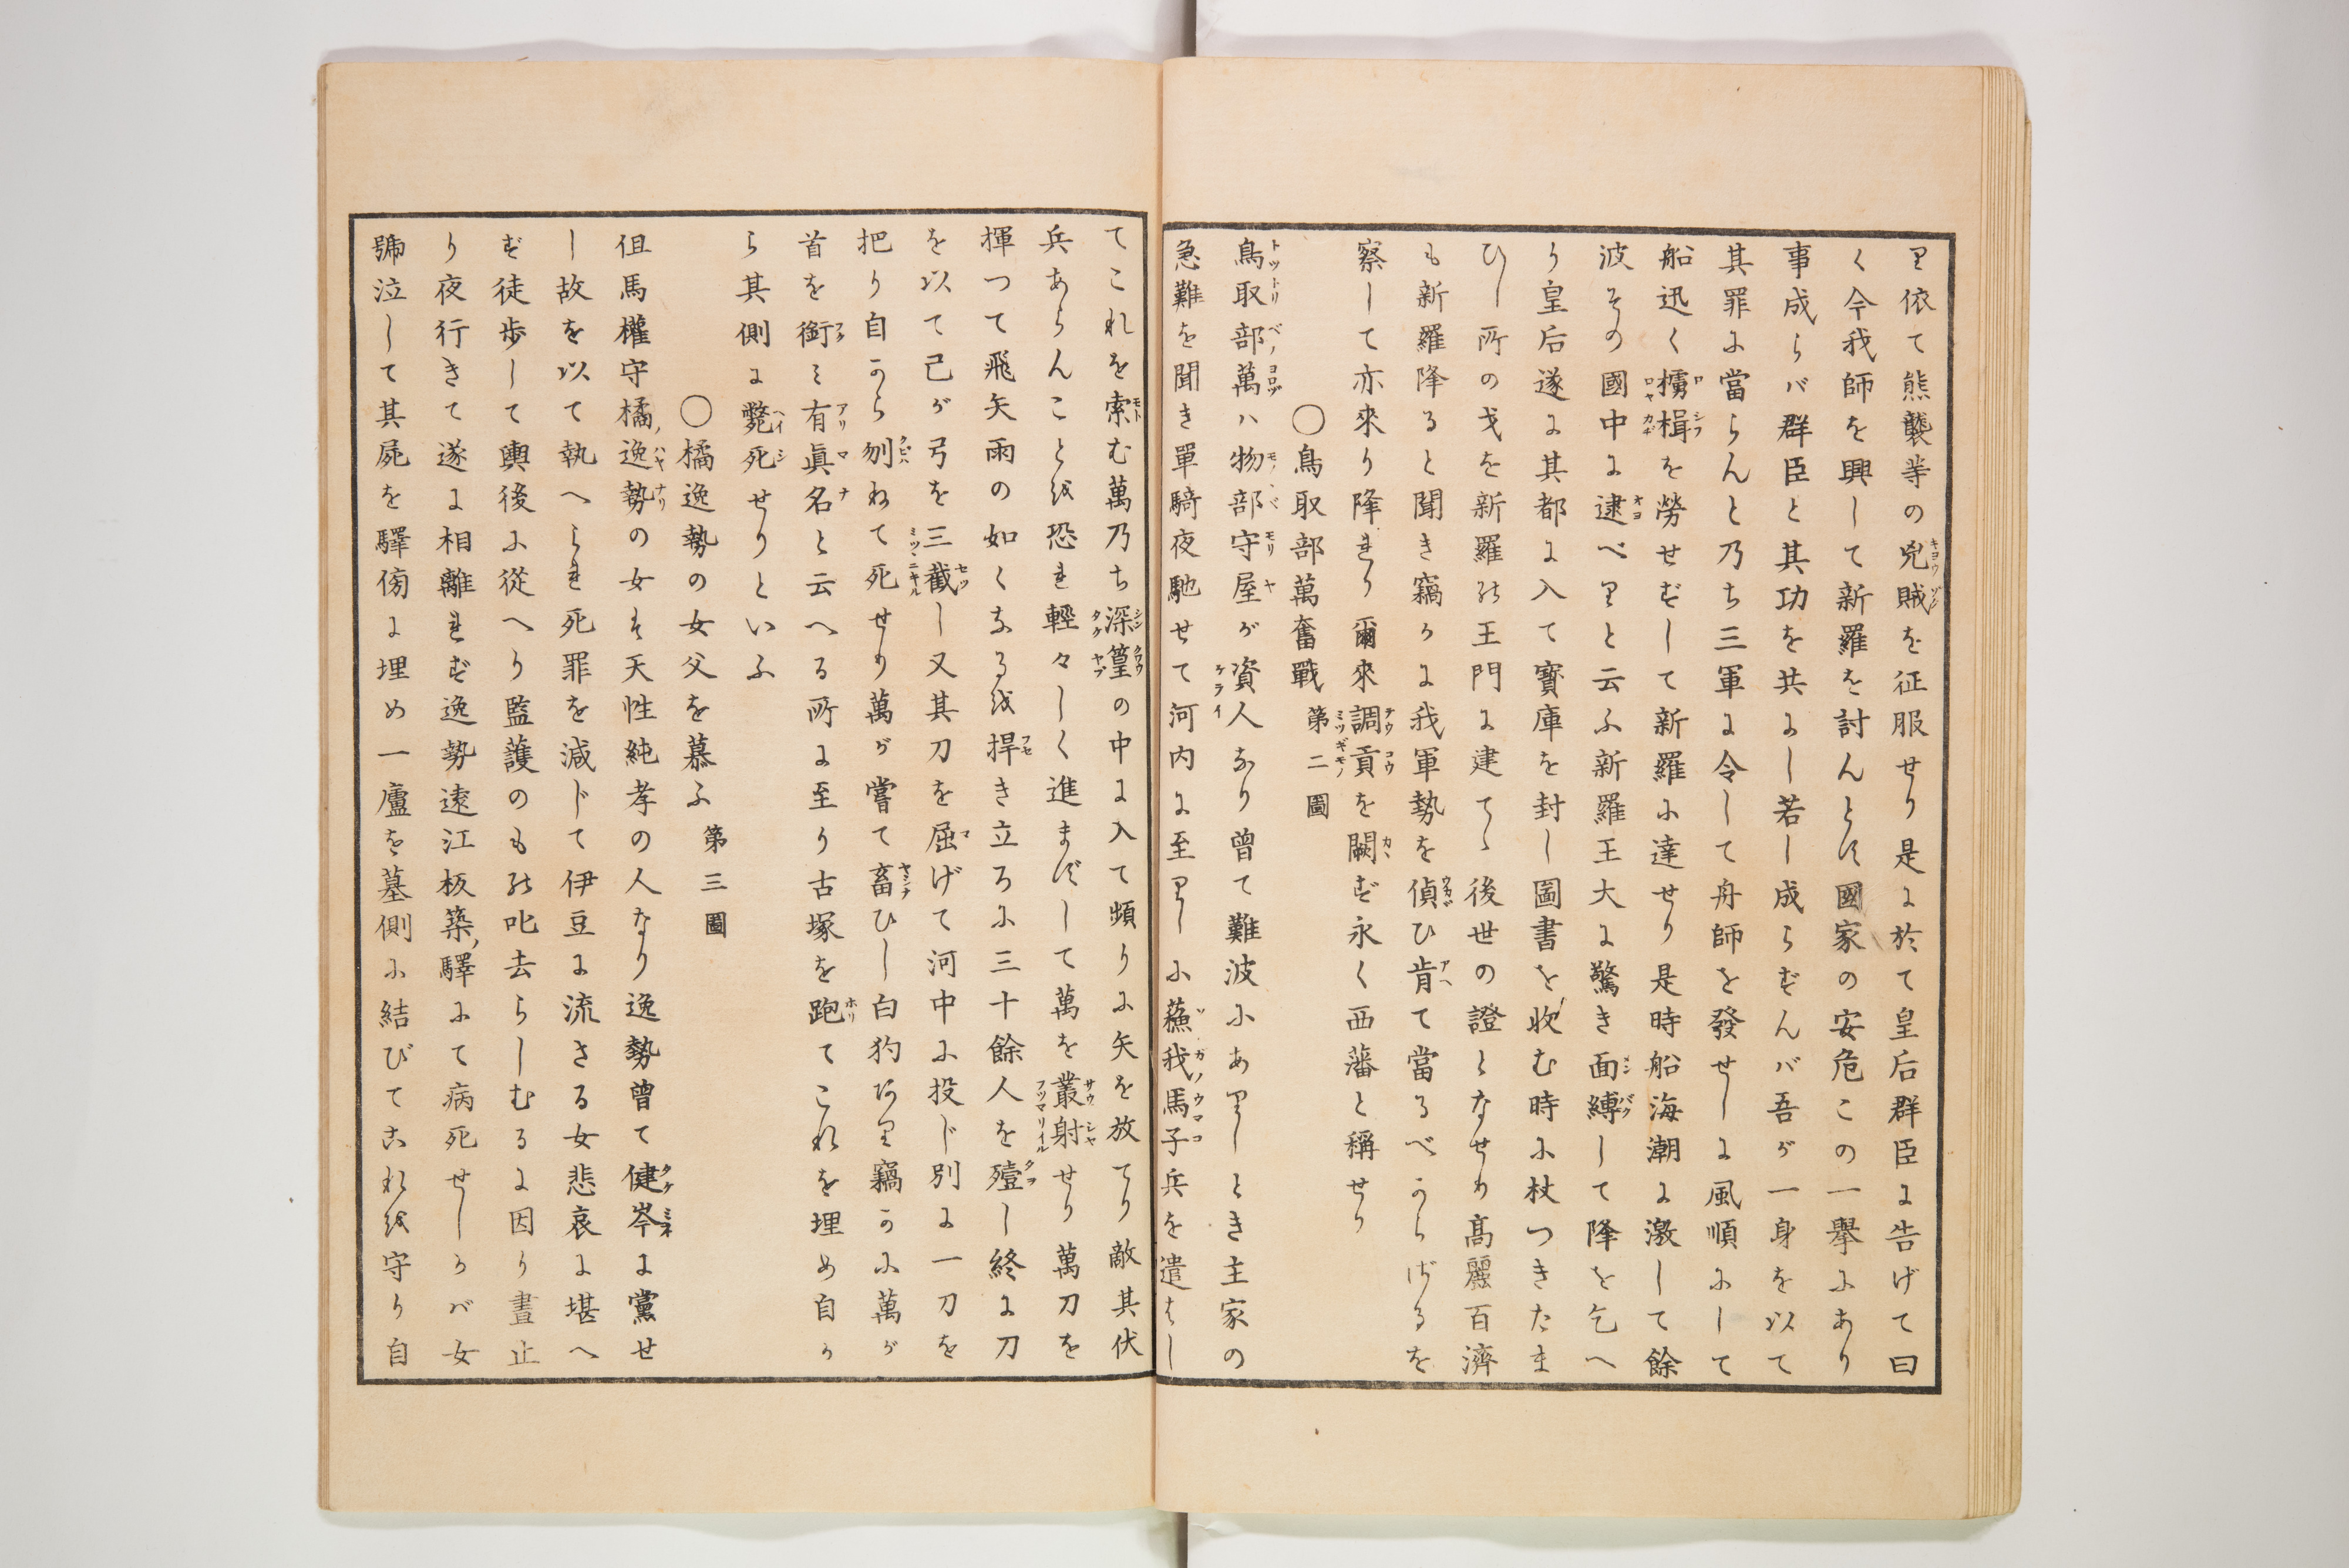 り依て熊襲等の兇賊を征服せり是に於て皇后群臣に告げて曰
く今我師を興して新羅を討んとす國家の安危この一擧にあり
事成らバ群臣と其功を共にし若し成らずんバ吾が一身を以て
其罪に當らんと乃ち三軍に令して舟師を發せしに風順にして
船迅く艣楫を勞せずして新羅に達せり是時船海潮に激して餘
波その國中に逮べりと云ふ新羅王大に驚き面縛して降を乞へ
り皇后遂に其都に入て寳庫を封し圖書を收む時に杖つきたま
ひし所の戈を新羅の王門に建てゝ後世の證となせり高麗百濟
も新羅降ると聞き竊かに我軍勢を偵ひ肯て當るべからざるを
察して亦來り降れり爾來調貢を闕ず永く西藩と稱せり
○鳥取部萬奮戰 第二圖
鳥取部萬ハ物部守屋が資人なり曾て難波にありしとき主家の
急難を聞き單騎夜馳せて河内に至りしに蘓我馬子兵を遣はし
てこれを索む萬乃ち深篁の中に入て頻りに矢を放てり敵其伏
兵あらんことを恐れ輕々しく進まずして萬を叢射せり萬刀を
揮つて飛矢雨の如くなるを捍き立ろに三十餘人を殪し終に刀
を以て己が弓を三截し又其刀を屈げて河中に投じ別に一刀を
把り自から刎ねて死せり萬が嘗て畜ひし白狗あり竊かに萬が
首を銜み有眞名と云へる所に至り古塚を跑てこれを埋め自か
ら其側に斃死せりといふ
○橘逸勢の女父を慕ふ 第三圖
但馬權守橘逸勢の女は天性純孝の人なり逸勢曾て健岑に黨せ
し故を以て執へられ死罪を減じて伊豆に流さる女悲哀に堪へ
ず徒歩して輿後に從へり監護のもの叱去らしむるに因り晝止
り夜行きて遂に相離れず逸勢遠江板築驛にて病死せしかバ女
號泣して其屍を驛傍に埋め一廬を墓側に結びてこれを守り自